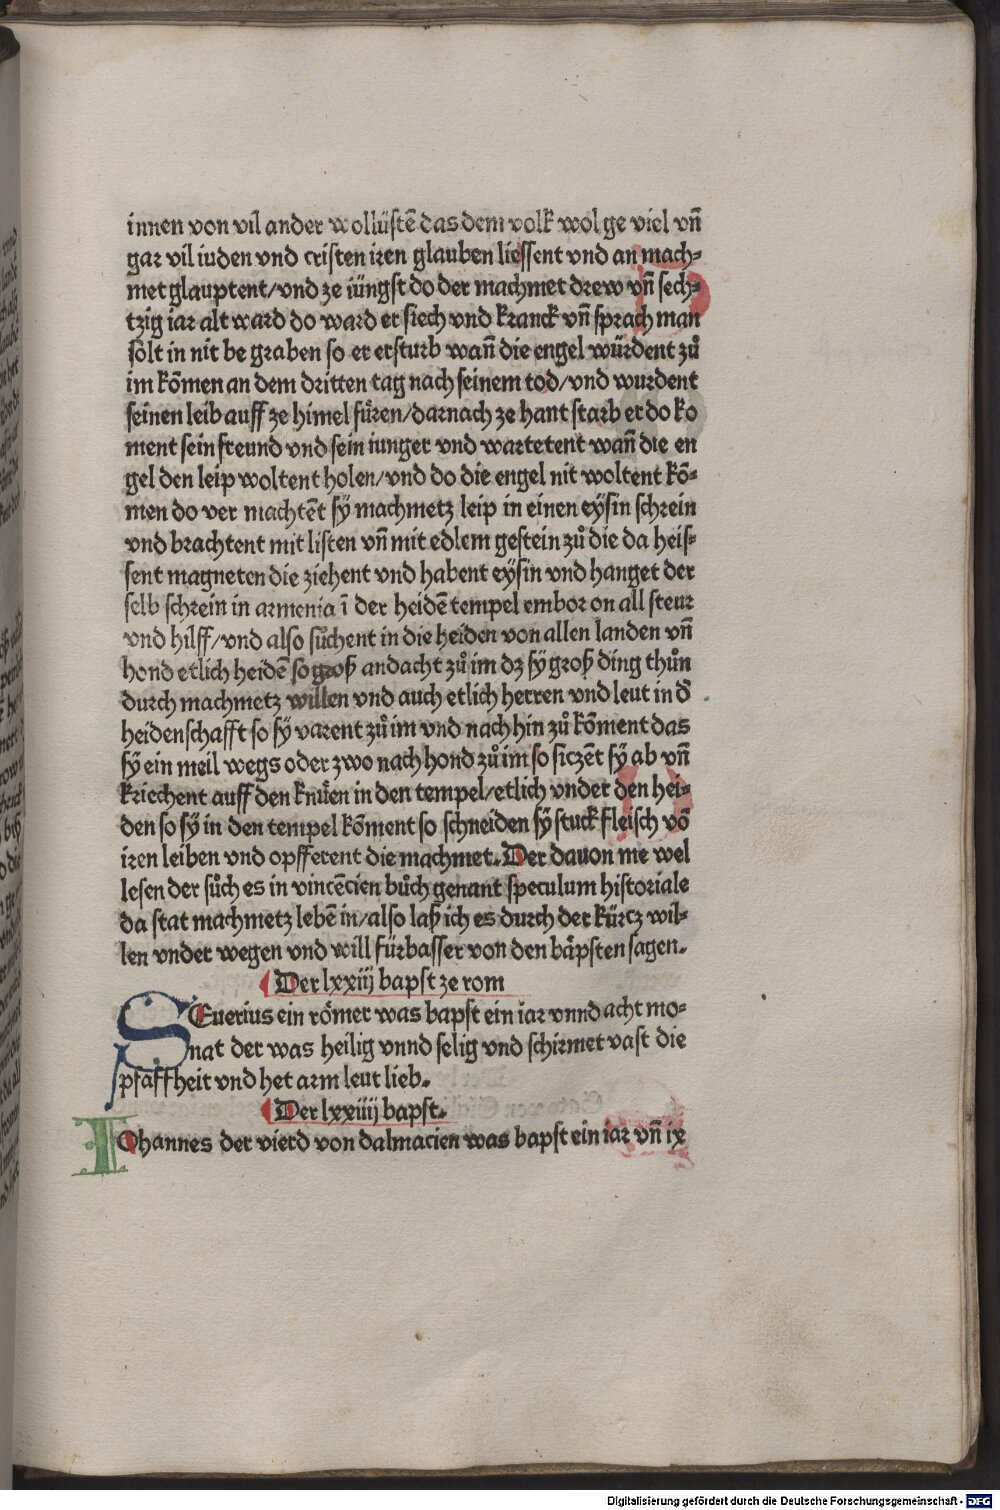 innen von vil ander wollüstē das dem volk wol ge viel vn̄
gar vil iuden vnd cristen iren glauben liessent vnd an mach⸗
met glauptent/vnd ze iüngst do der machmet drew vn̄ sech⸗
tzig iar alt ward do ward er siech vnd kranck vn̄ sprach man
solt in nit be graben so er ersturb wan̄ die engel würdent zů
im kōmen an dem dritten tag nach seinem tod/vnd wurdent
seinen leib auff ze himel füren/darnach ze hant starb er do ko
ment sein freund vnd sein iunger vnd wartetent wan̄ die en
gel den leip woltent holen/vnd do die engel nit woltent kō⸗
men do ver machtēt sy̆ machmetz leip in einen eysin schrein
vnd brachtent mit listen vn̄ mit edlem gestein zů die da heis⸗
sent magneten die ziehent vnd habent eysin vnd hanget der
selb schrein in armenia ī der heidē tempel embor on all steur
vnd hilff/vnd also sůchent in die heiden von allen landen vn̄
hond etlich heidē so groß andacht zů im dz sy̆ groß ding thůn
durch machmetz willen vnd auch etlich herren vnd leut in d̄
heidenschafft so sy̆ varent zů im vnd nach hin zů kōment das
sy̆ ein meil wegs oder zwo nach hond zů im so siczēt sy̆ ab vn̄
kriechent auff den knüen in den tempel/etlich vnder den hei⸗
den so sy̆ in den tempel kōment so schneiden sy̆ stuck fleisch vō
iren leiben vnd opfferent die machmet. Der dauon me wel
lesen der sůch es in vincēcien bůch genant speculum historiale
da stat machmetz lebē in/also laß ich es durch der kürcz wil⸗
len vnder wegen vnd will fürbasser von den bäpsten sagen.
Der lxxiij bapst ze rom
SEuerius ein römer was bapst ein iar vnnd acht mo⸗
nat der was heilig vnnd selig vnd schirmet vast die
pfaffheit vnd het arm leut lieb.
Der lxxiiij bapst.
IOhannes der vierd von dalmacien was bapst ein iar vn̄ ix
Digitalisierung gefördert durch die Deutsche Forschungsgemeinschaft - DFG